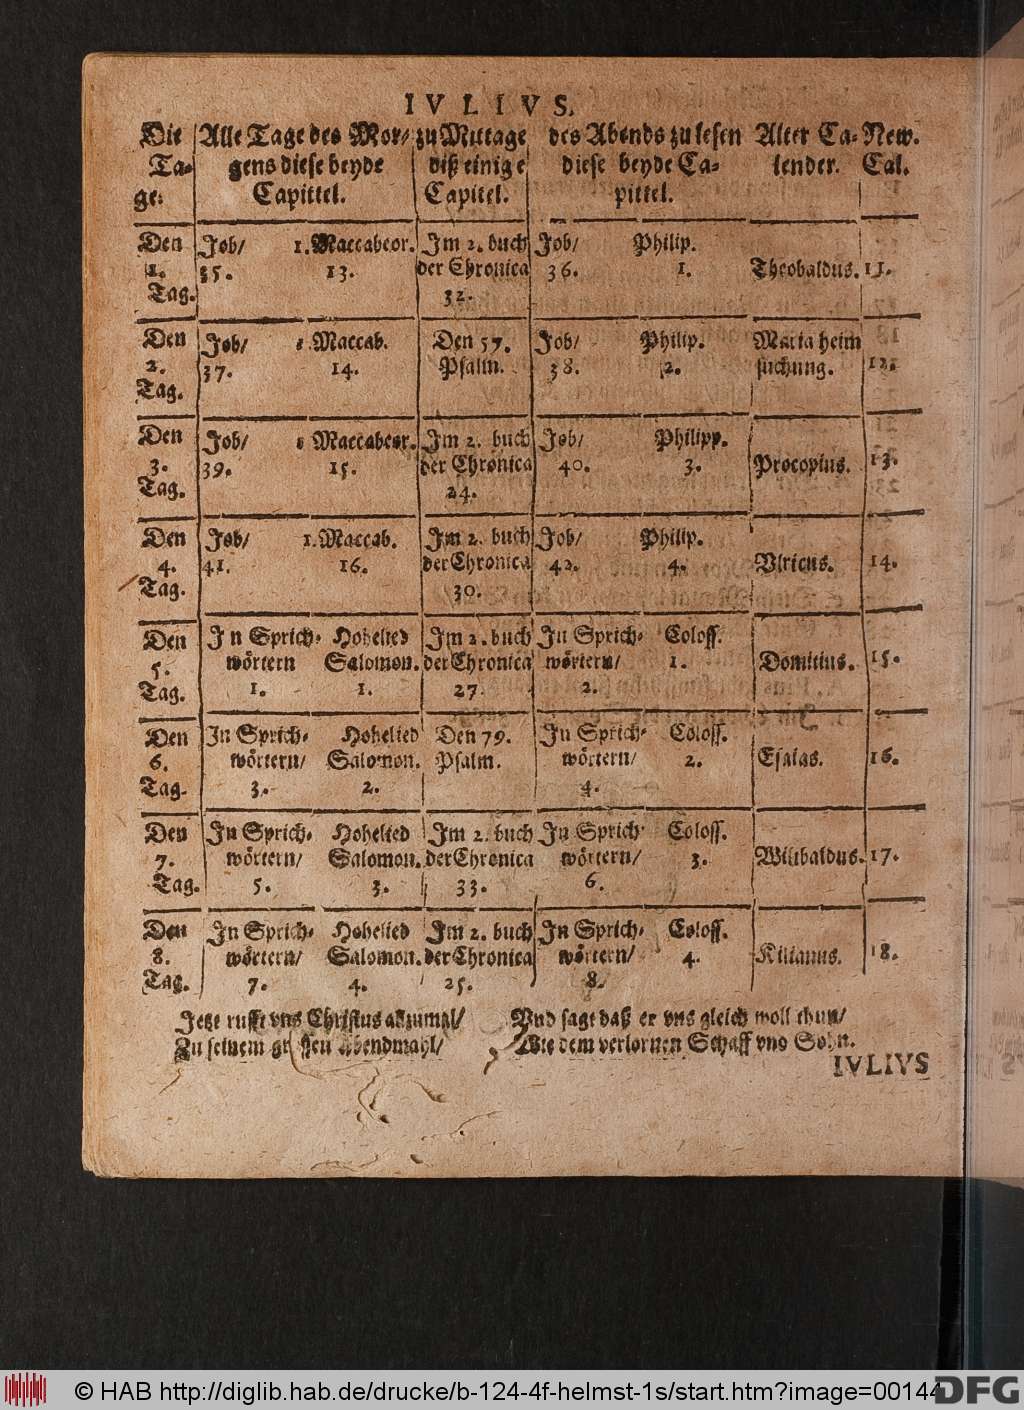 IVLIVS.
Die Alle Tage des Mor- zu Mittage des Abends zu lesen Alter Ca- New.
Ta- gens diese beyde diß einige diese beyde Ca- lender. Cal.
ge. Capittel. Capitel. pittel.
Den Job/ 1. Maccabeor. Im 2. buch Job/ Philip.
1. 35. 13. der Chronica 36. 1. Theobaldus. 11.
Tag. 32.
Den Job/ Maccab. Den 57. Job/ Philip. Maria heim
2. 37. 14. Psalm. 38. 2. suchung. 12.
Tag.
Den Job/ Maccabeor. Im 2. buch Job/ Philipp.
3. 39. 15. der Chronica 40. 3. Procopius. 13.
Tag. 24.
Den Job/ 1. Maccab. Im 2. buch Job/ Philip.
4. 41. 16. der Chronica 42. 4. Vlricus. 14.
Tag. 30.
Den In Sprich- Hohelied Im 2. buch In Sprich- Coloss.
5. wörtern Salomon. der Chronica wörtern/ 1. Domitius. 15.
Tag. 1. 1. 27. 2.
Den In Sprich- Hohelied Den 79. In Sprich- Coloss.
6. wörtern/ Salomon. Psalm. wörtern/ 2. Esaias. 16.
Tag. 3. 2. 4.
Den In Sprich- Hohelied Im 2. buch In Sprich- Coloss.
7. wörtern/ Salomon. der Chronica wörtern/ 3. Willibaldus. 17.
Tag. 5. 3. 33. 6.
Den In Sprich- Hohelied Im 2. buch In Sprich- Coloss.
8. wörtern/ Salomon. der Chronica wörtern/ 4. Kilianus. 18.
Tag. 7. 4. 25. 8.
Jetzt rufft vns Christus allzumal/ Vnd sagt daß er vns gleich woll thun/
Zu seinem Abendmahl/ Wie dem verlornen Schaff vnd Sohn.
IVLIVS
© HAB http://diglib.hab.de/drucke/b-124-4f-helmst-1s/start.htm?image=00144
DFG